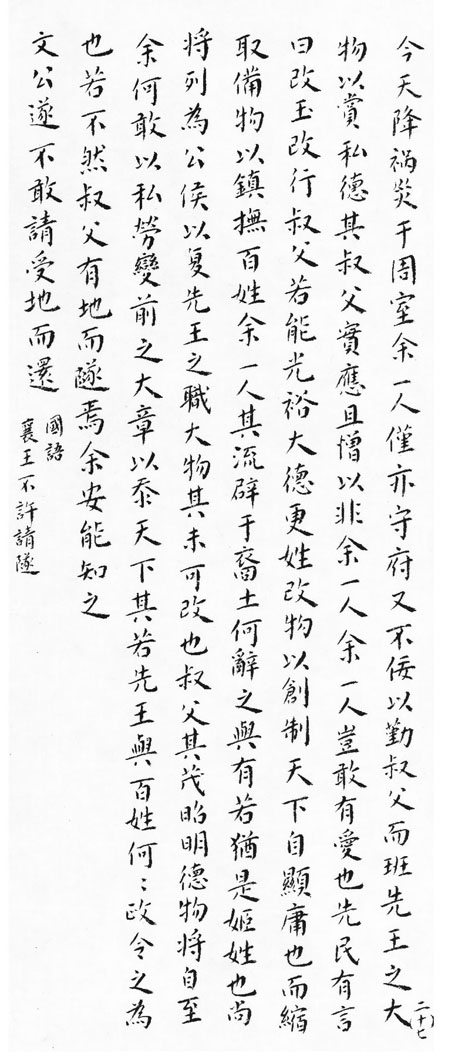 今天降禍災于周室余一人僅亦守府又不佞以勤叔父而班先王之大
物以賞私德其叔父實應且憎以非余一人余一人豈敢有愛也先民有言
曰改玉改行叔父若能光裕大德更姓改物以創制天下自顯庸也而縮
取備物以鎮撫百姓余一人其流辟于裔土何辭之與有若猶是姬姓也尚
將列為公侯以复先王之職大物其未可改也叔父其茂昭明德物將自至
余何敢以私勞變前之大章以忝天下其若先王與百姓何〻政令之為
也若不然叔父有地而隧焉余安能知之
文公遂不敢請受地而還
國語
襄王不許請隧
(二十七)